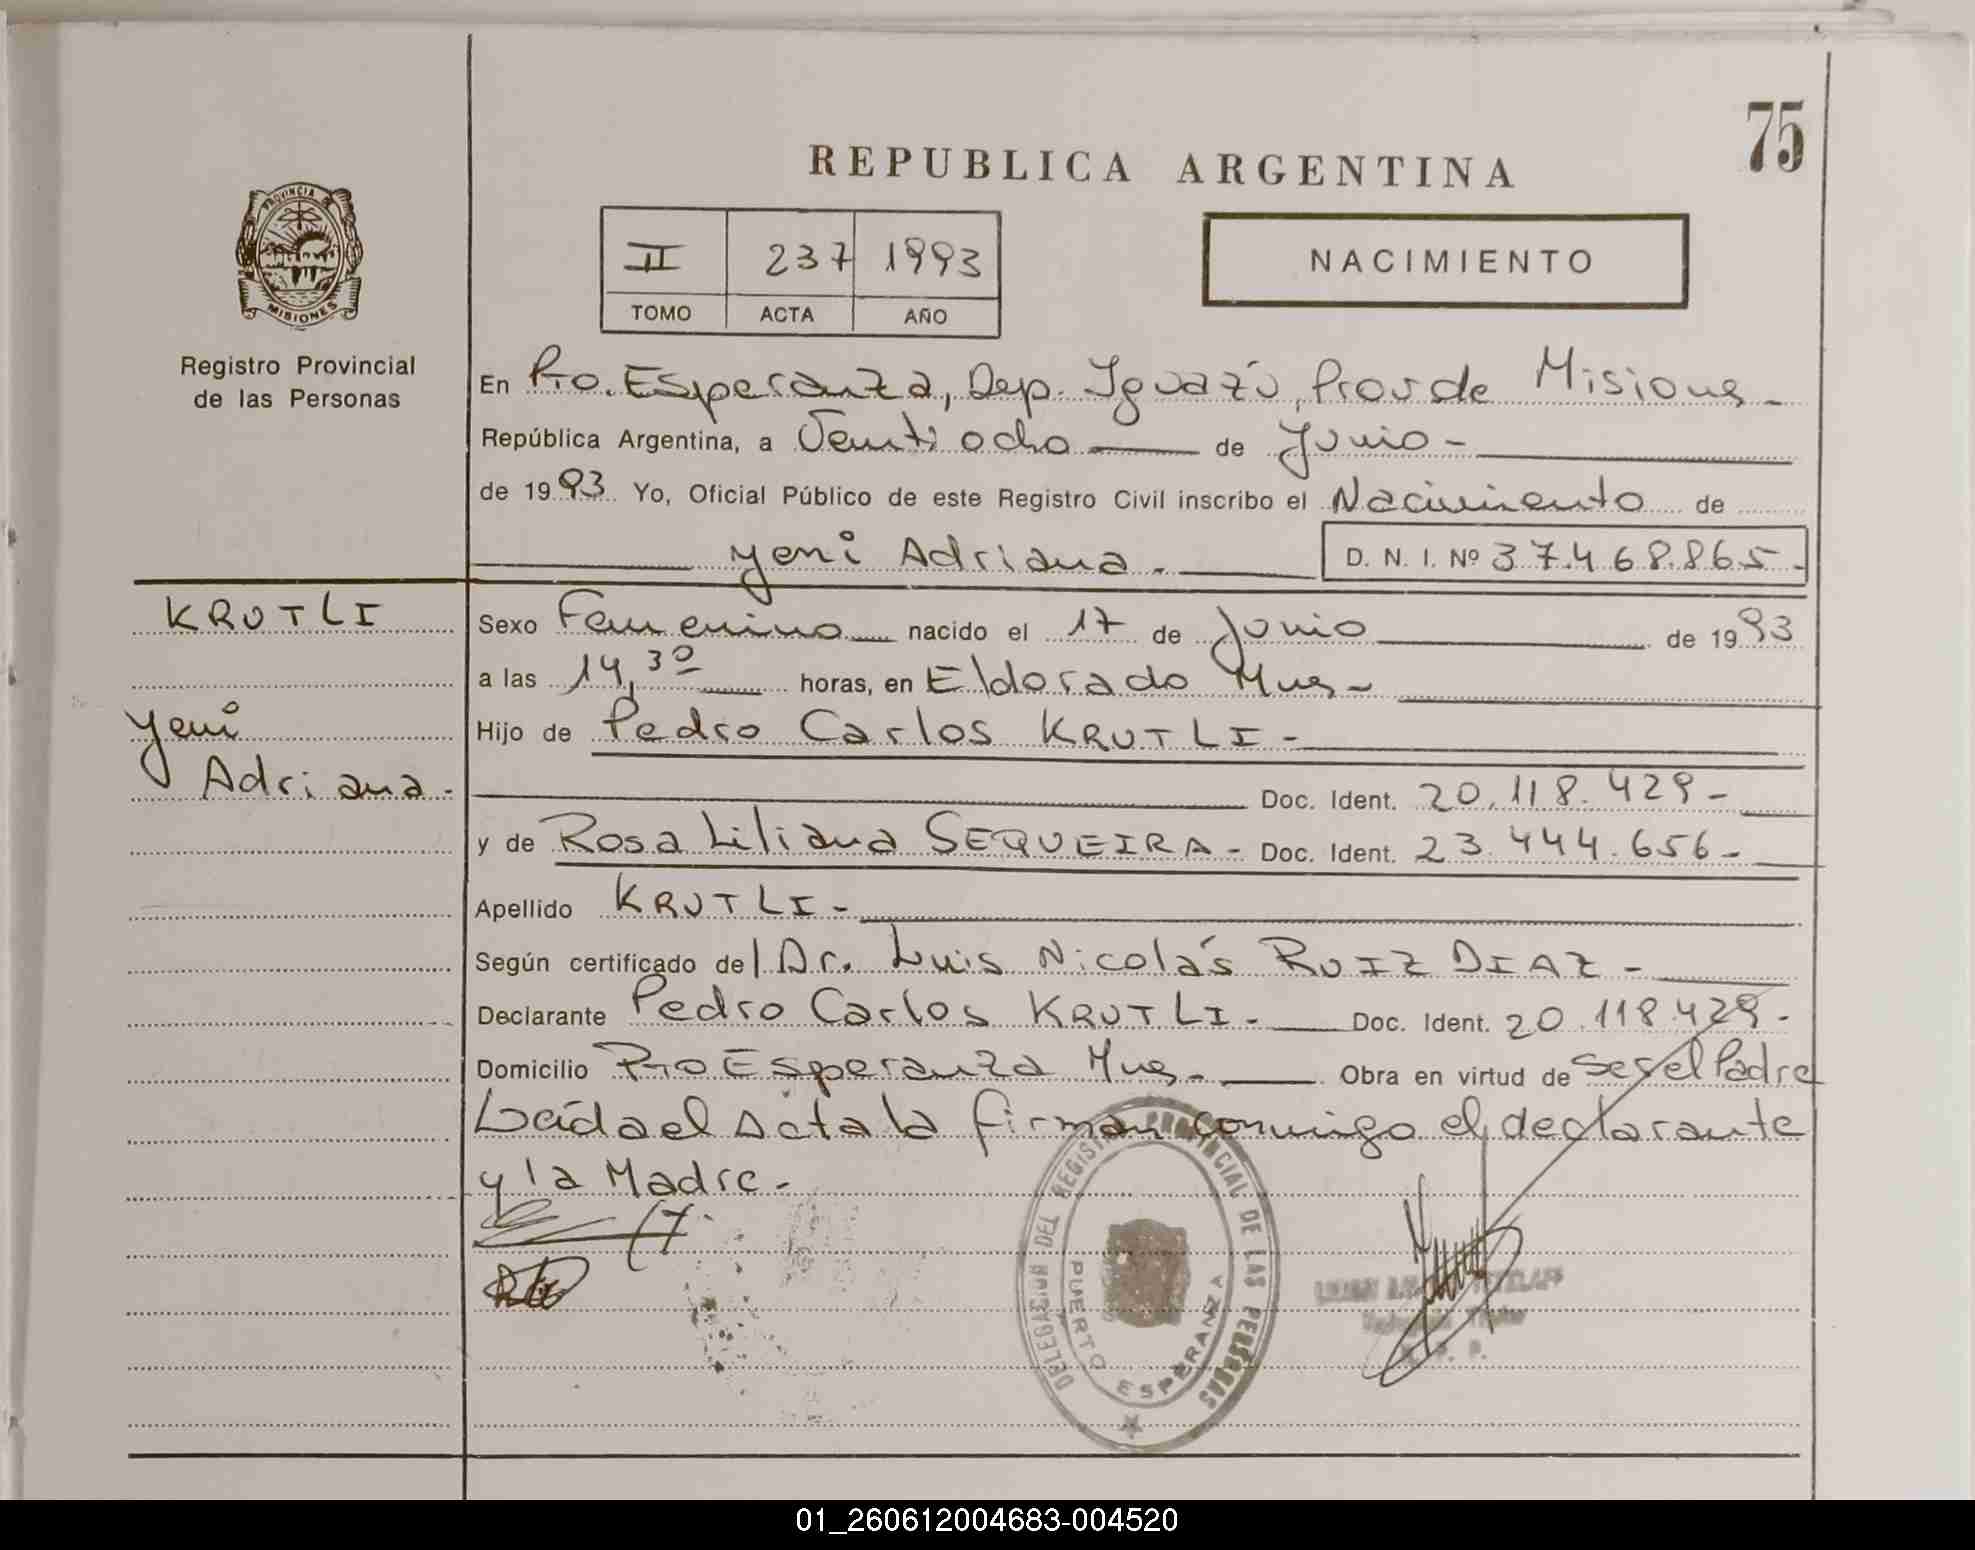 75
REPUBLICA ARGENTINA
PROVINCIA
MISIONES
Registro Provincial
de las Personas
II 237 1993
TOMO ACTA AÑO
NACIMIENTO
En Pto. Esperanza, Dep. Iguazú, Prov de Misiones -
República Argentina, a Veinti ocho de Junio -
de 1993 Yo, Oficial Público de este Registro Civil inscribo el Nacimiento de
Yeni Adriana. D. N. I. Nº 37.468.865 -
KRUTLI
Yeni
Adriana.
Sexo Femenino nacido el 17 de Junio de 1993
a las 14,30 horas, en Eldorado Mnes -
Hijo de Pedro Carlos KRUTLI -
Doc. Ident. 20.118.429 -
y de Rosa Liliana SEQUEIRA - Doc. Ident. 23.444.656 -
Apellido KRUTLI -
Según certificado del Dr. Luis Nicolás RUIZ DIAZ -
Declarante Pedro Carlos KRUTLI - Doc. Ident. 20.118.429 -
Domicilio Pto Esperanza Mnes - Obra en virtud de ser el Padre
Leída el Acta la firman conmigo el declarante
y la Madre -
DELEGACION DEL REGISTRO PROVINCIAL DE LAS PERSONAS
PUERTO ESPERANZA
01_260612004683-004520